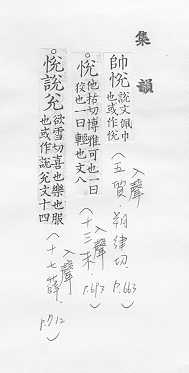 集韻
帥帨 說文佩巾
也或作帨
(五質.朔律切.入聲 P.663)
。悅 他括切博雅可也一曰
狡也一曰輕也文八
(十三末. 入聲 P.693)
。悅說兊 欲雪切喜也樂也服
也或作說兊文十四
(十七薛. 入聲 P.712)